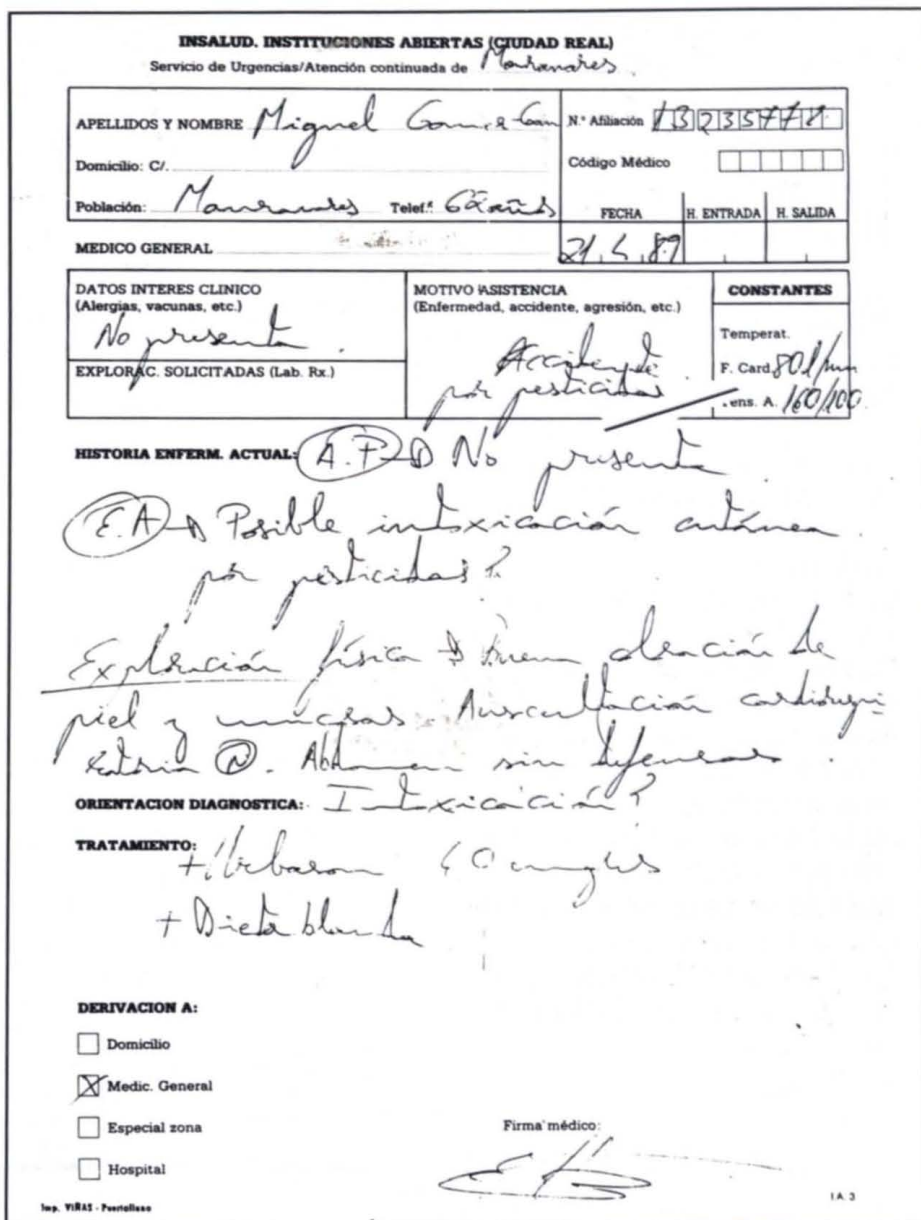 INSALUD. INSTITUCIONES ABIERTAS (CIUDAD REAL)
Servicio de Urgencias/Atención continuada de Manzanares
APELLIDOS Y NOMBRE Miguel
N.º Afiliación
Domicilio: C/.
Código Médico
Población: Manzanares Telef.º
FECHA H. ENTRADA H. SALIDA
MEDICO GENERAL
DATOS INTERES CLINICO
(Alergias, vacunas, etc.)
No presenta
EXPLORAC. SOLICITADAS (Lab. Rx.)
MOTIVO ASISTENCIA
(Enfermedad, accidente, agresión, etc.)
Accidente
por pesticidas
CONSTANTES
Temperat.
F. Card. 80 l/min
Tens. A. 160/100
HISTORIA ENFERM. ACTUAL: A.P No presenta
E.A Posible intoxicación cutánea
por pesticidas?
Exploración física Buena de
piel y mucosas. Auscultación cardiorrespi-
ratoria N. Abdomen sin defensas.
ORIENTACION DIAGNOSTICA: Intoxicación?
TRATAMIENTO:
+ Urbason
+ Dieta blanda
DERIVACION A:
Domicilio
Medic. General
Especial zona
Hospital
Firma médico:
Imp. VIÑAS - Puertollano
I.A. 3